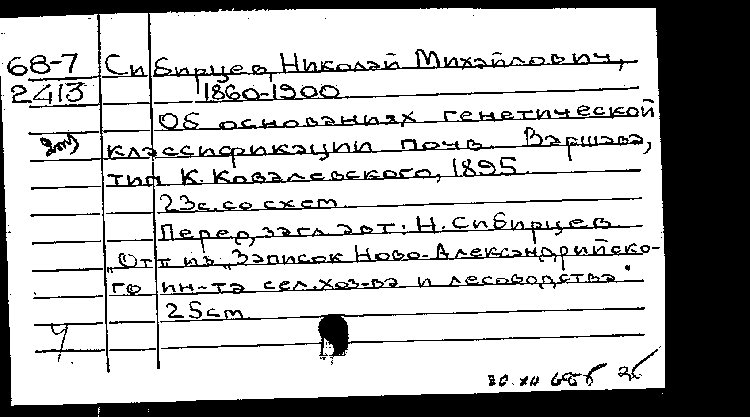 68-7 Сибирцев, Николай Михайлович,
2413 1860-1900
Об основаниях генетической
классификации почв. Варшава,
тип. К. Ковалевского, 1895.
23 с. со схем.
Перед загл. авт.: Н. Сибирцев
„Отт. из „Записок Ново-Александрийско-
го ин-та сел. хоз-ва и лесоводства"
25 см.